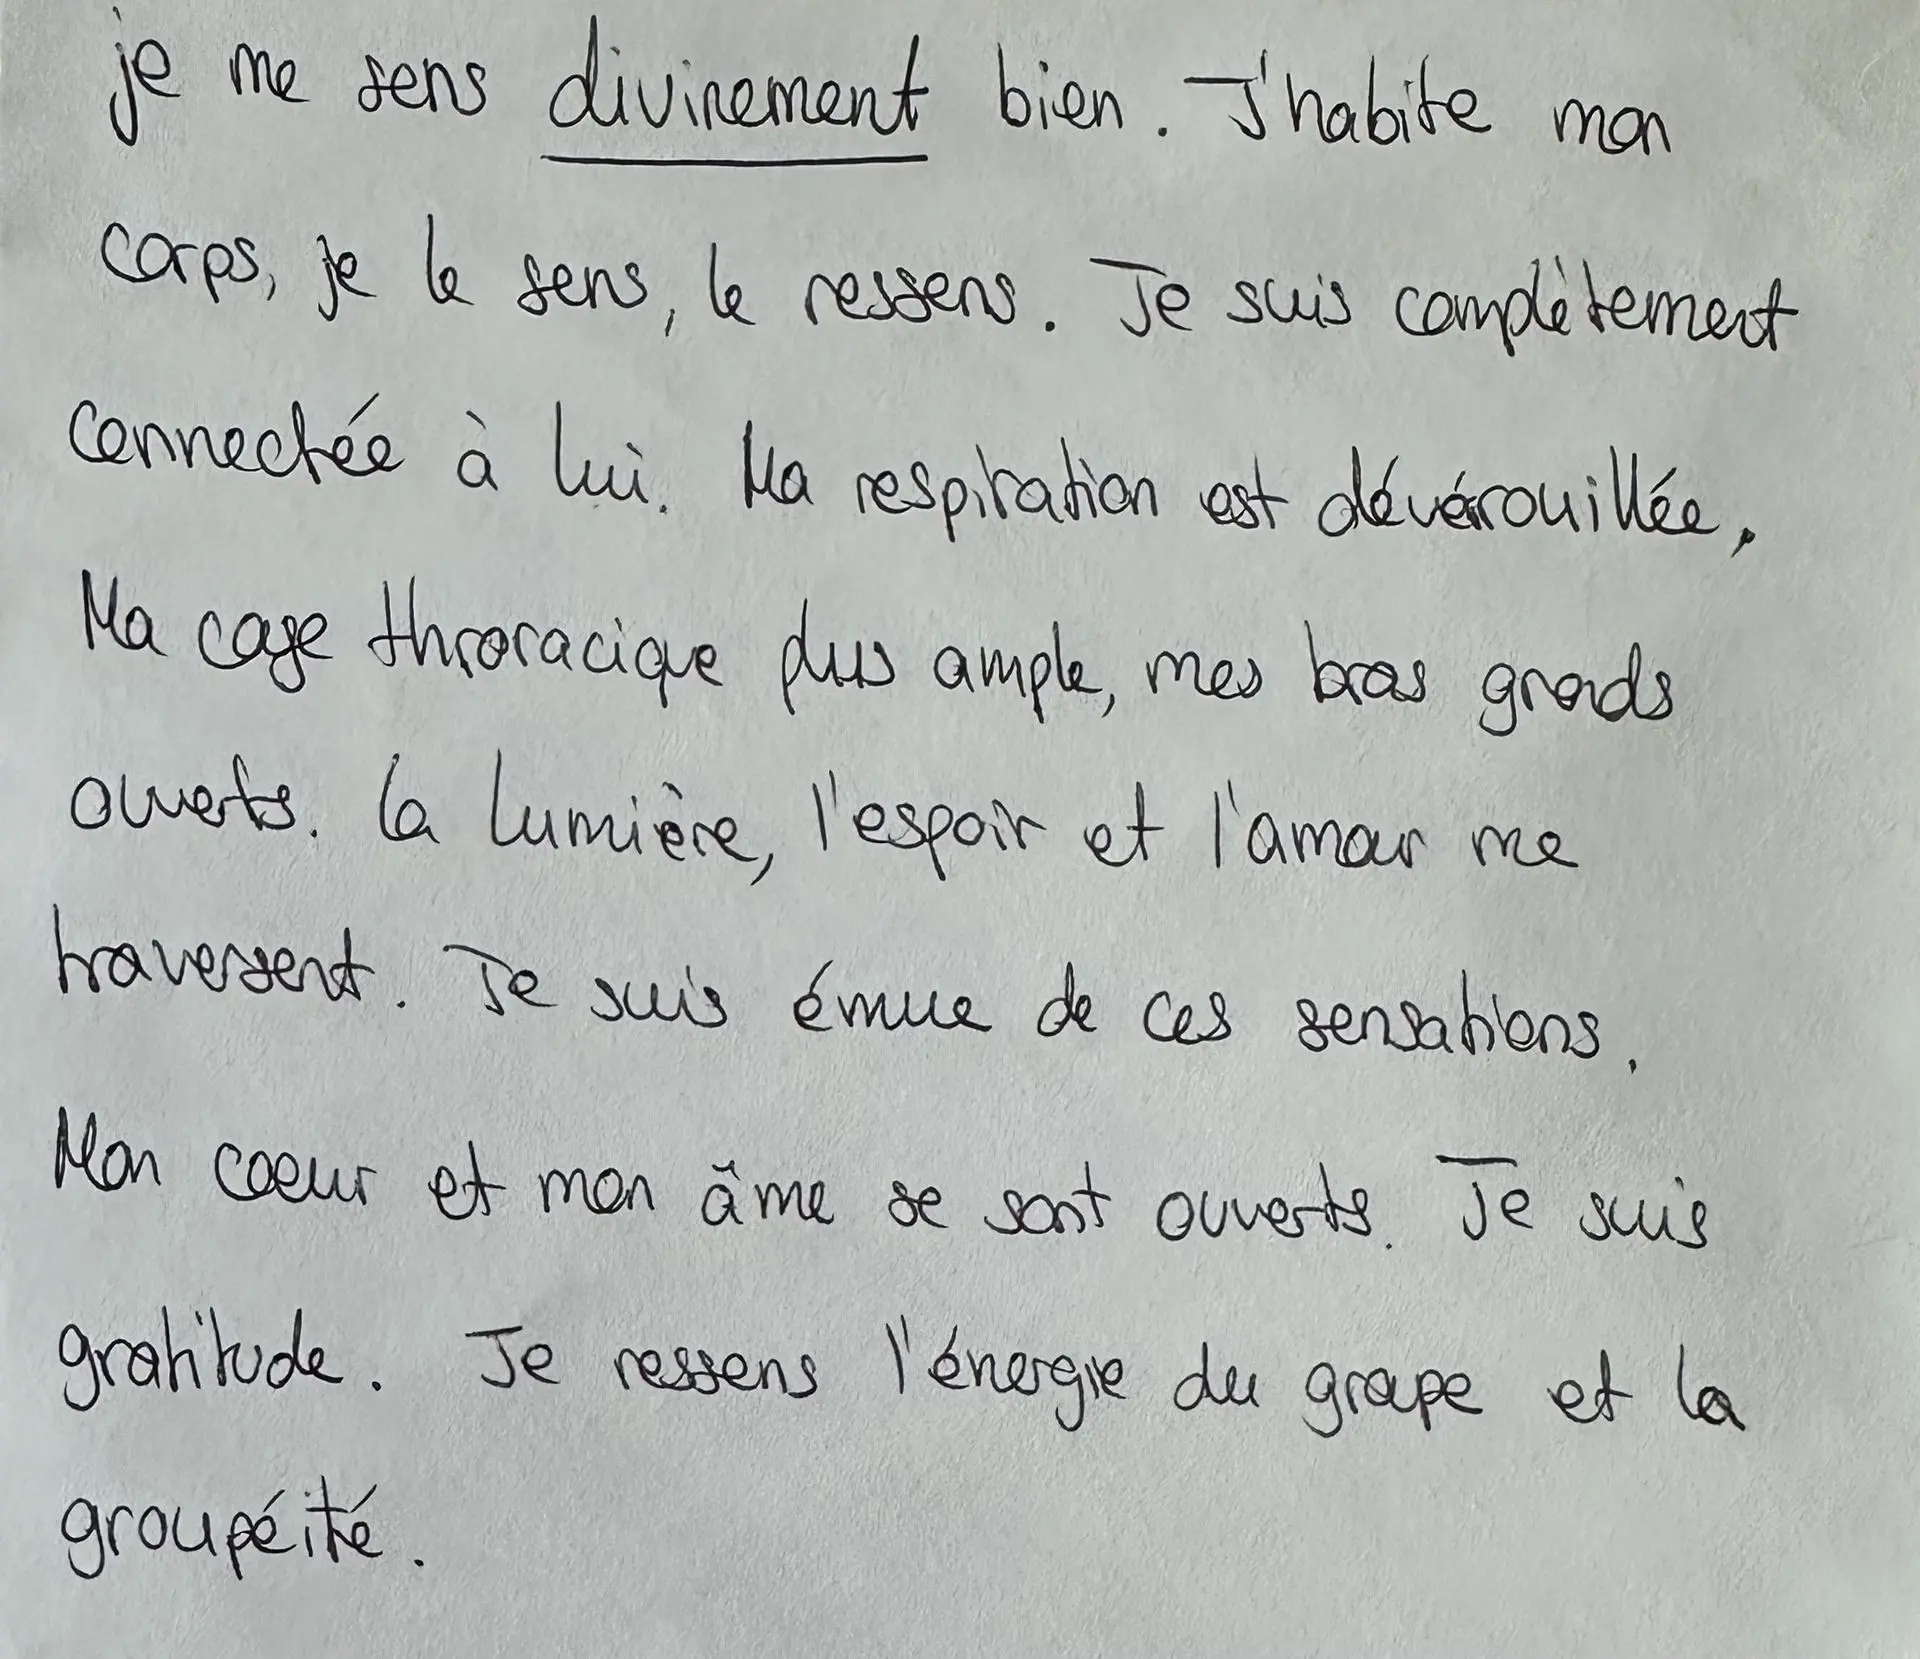 je me sens divinement bien. J'habite mon
corps, je le sens, le ressens. Je suis complètement
connectée à lui. Ma respiration est dévérouillée,
Ma cage throracique plus ample, mes bras grands
ouverts. La lumière, l'espoir et l'amour me
traversent. Je suis émue de ces sensations.
Mon coeur et mon âme se sont ouverts. Je suis
gratitude. Je ressens l'énergie du groupe et la
groupéité.